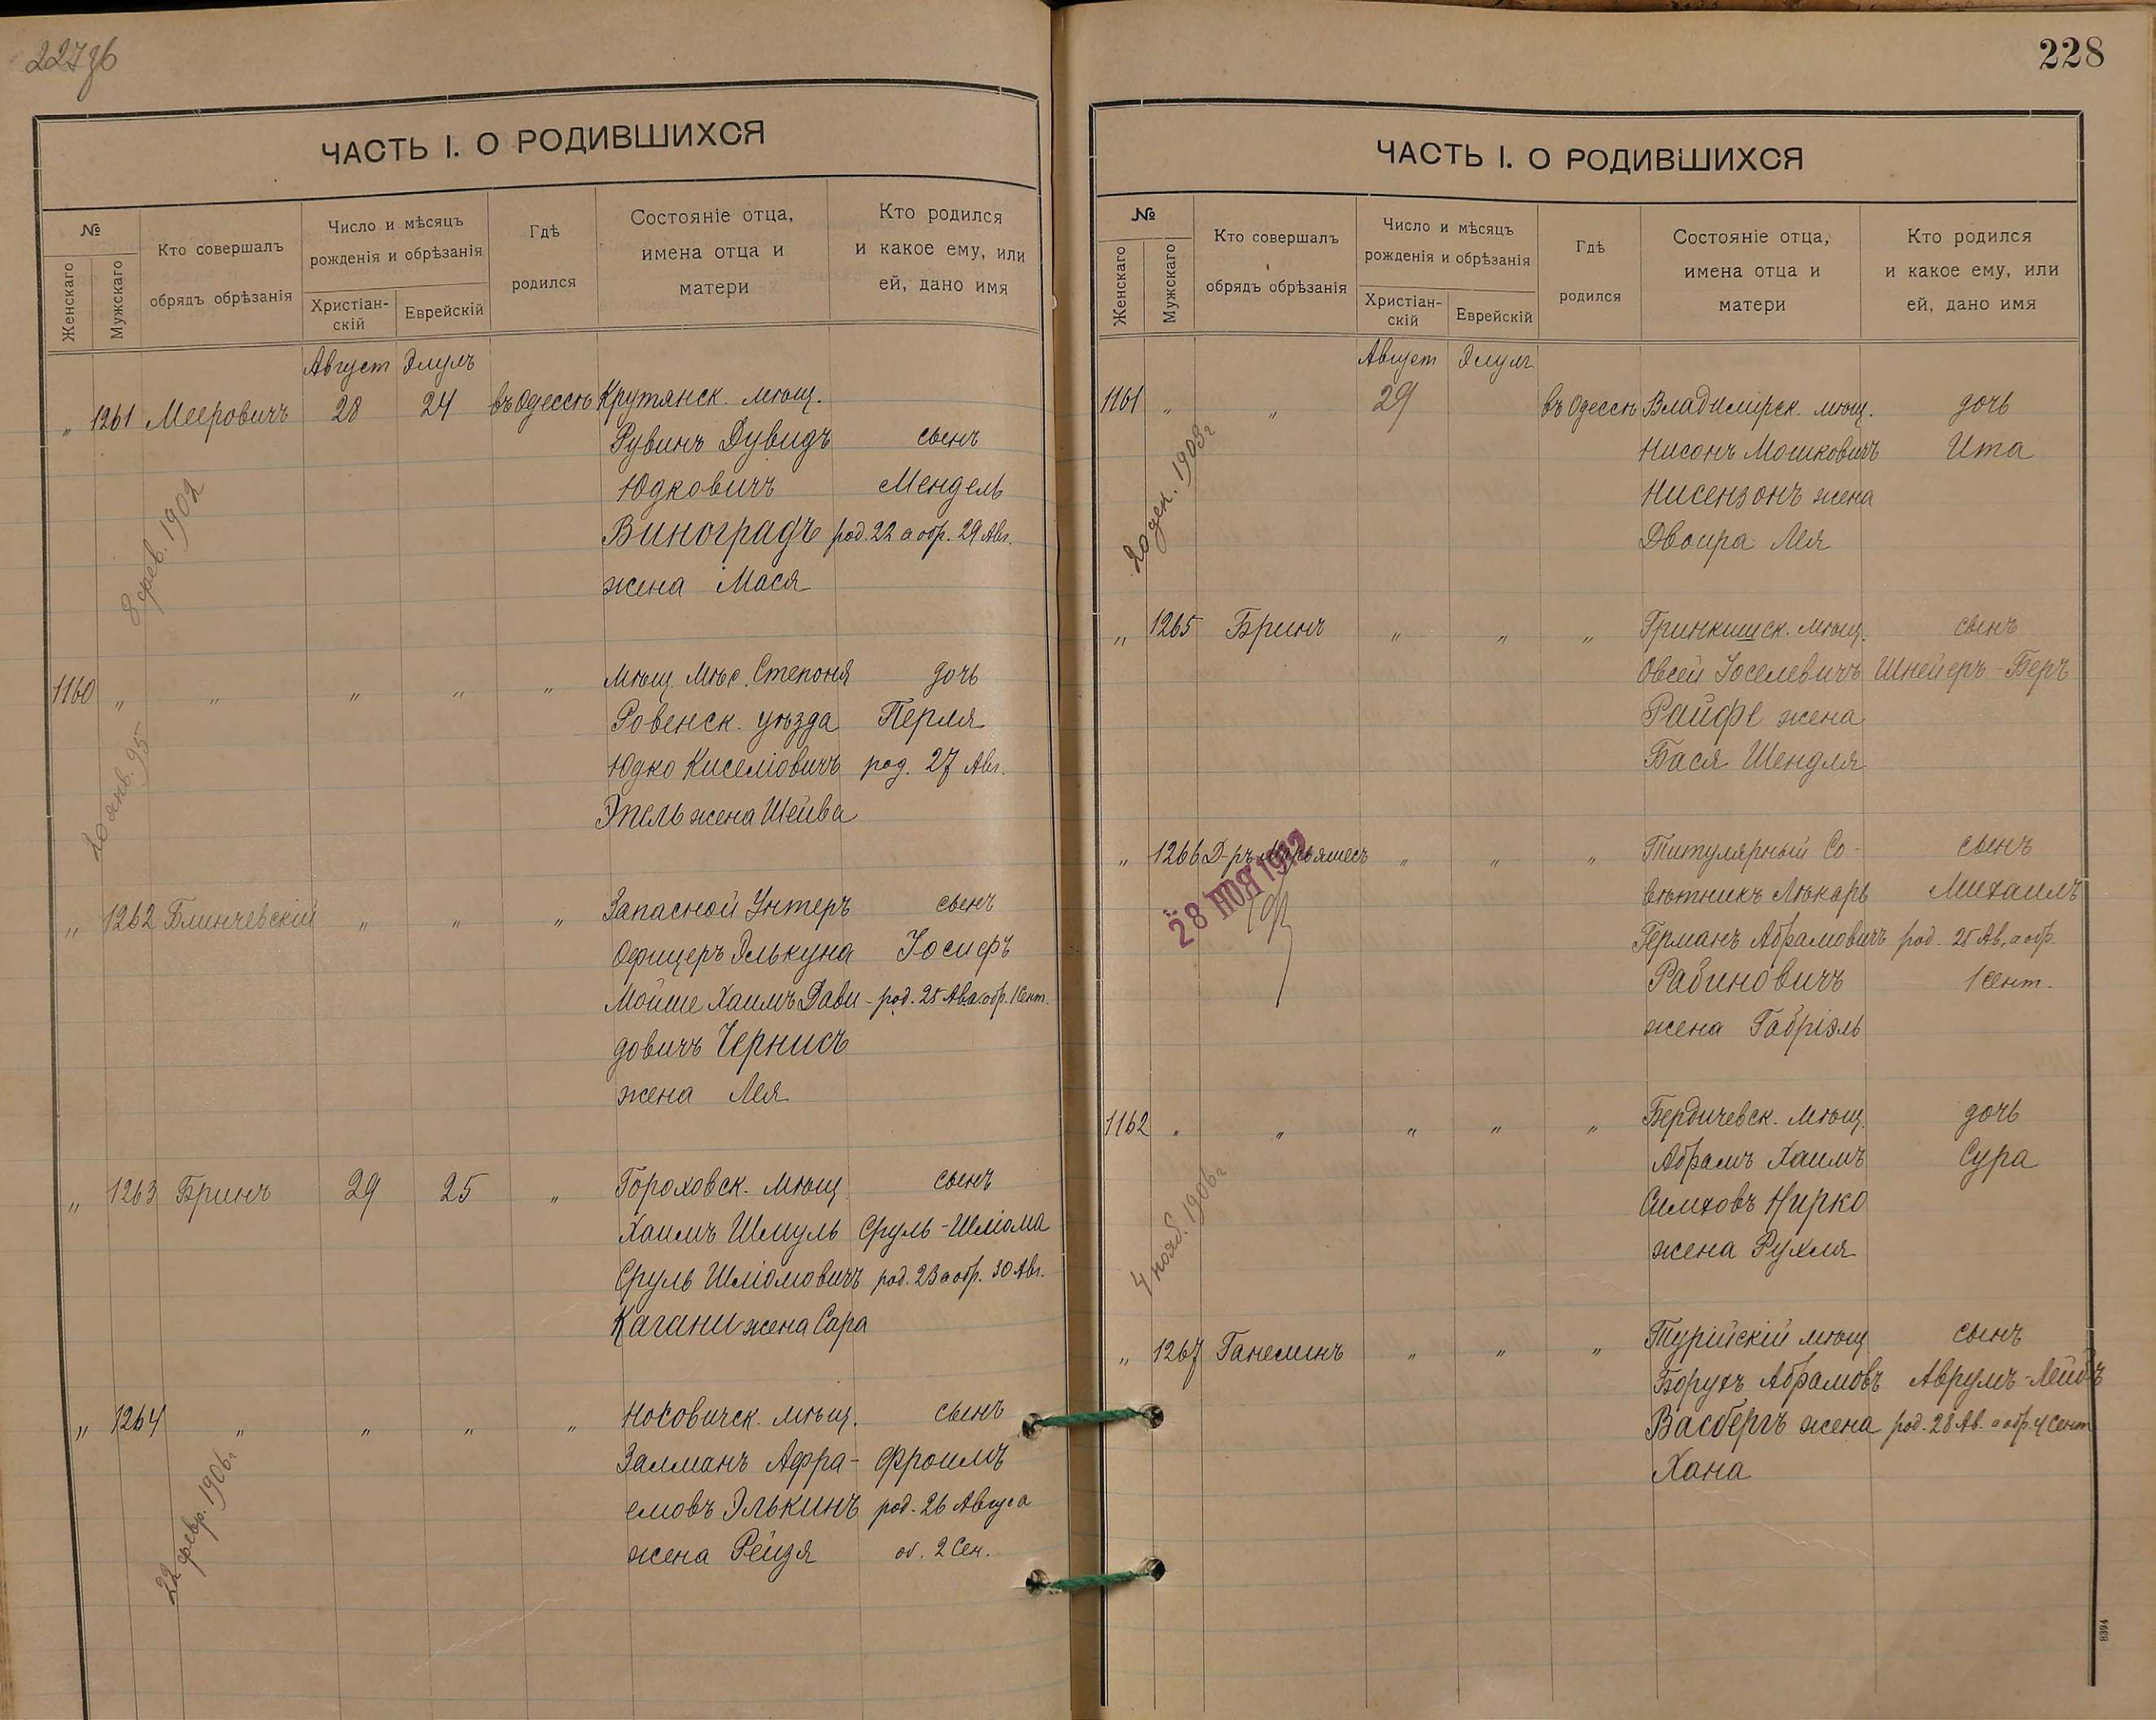 227 об
ЧАСТЬ I. О РОДИВШИХСЯ
№
Женскаго
Мужскаго
Кто совершалъ
обрядъ обрѣзанія
Число и мѣсяцъ
рожденія и обрѣзанія
Христіан-
скій
Еврейскій
Гдѣ
родился
Состояніе отца,
имена отца и
матери
Кто родился
и какое ему, или
ей, дано имя
Август Элулъ
„ 1261 Мееровичъ 28 24 въ Одессѣ Крутянск. мѣщ.
Рувинъ Дувидъ сынъ
Юдковичъ Мендель
Виноградъ род. 22 а обр. 29 Авг.
жена Мася
8 фев. 1902
1160 „ „ „ „ „ Мѣщ. Мѣс. Степоня дочь
Ровенск. уѣзда Перля
Юдко Киселіовичъ род. 27 Авг.
Эпель жена Шейва
20 янв. 95
„ 1262 Блинчевскій „ „ „ Запасной Унтеръ сынъ
Офицеръ Элькуна Іосифъ
Мойше Хаимъ Дави- род. 25 Ав. а обр. 1 Сент.
довичъ Чернисъ
жена Лея
„ 1263 Бринъ 29 25 „ Гороховск. мѣщ. сынъ
Хаимъ Шмуль Сруль-Шліома
Сруль Шліомовичъ род. 23 а обр. 30 Авг.
Кагани жена Сара
„ 1264 „ „ „ „ Носовичск. мѣщ. сынъ
Залманъ Афра- Фроимъ
емовъ Элькинъ род. 26 Авгус а
жена Рейзя об. 2 Сен.
22 февр. 1906 г
228
ЧАСТЬ I. О РОДИВШИХСЯ
№
Женскаго
Мужскаго
Кто совершалъ
обрядъ обрѣзанія
Число и мѣсяцъ
рожденія и обрѣзанія
Христіан-
скій
Еврейскій
Гдѣ
родился
Состояніе отца,
имена отца и
матери
Кто родился
и какое ему, или
ей, дано имя
Август Элулъ
1161 „ „ 29 въ Одессѣ Владимірск. мѣщ. дочь
Нисонъ Мошковичъ Ита
Нисензонъ жена
Двойра Лея
20 дек. 1903 г
„ 1265 Бринъ „ „ „ Гринкишск. мѣщ. сынъ
Овсей Іоселевичъ Шнейеръ-Беръ
Райфе жена
Бася Шендля
„ 1266 Д-ръ „ „ „ Титулярный Со- сынъ
вѣтникъ Лѣкарь Михаилъ
Германъ Абрамовичъ род. 25 Ав. а обр.
Рабиновичъ 1 Сент.
жена Габріэль
28 НОЯ 1912
1162 „ „ „ „ „ Бердичевск. мѣщ. дочь
Абрамъ Хаимъ Сура
Симховъ Нирко
жена Рухля
4 нояб. 1906 г
„ 1267 Ганелинъ „ „ „ Турійскій мѣщ. сынъ
Борухъ Абрамовъ Аврумъ-Лейбъ
Васбергъ жена род. 28 Ав. а обр. 4 Сент
Хана
8394